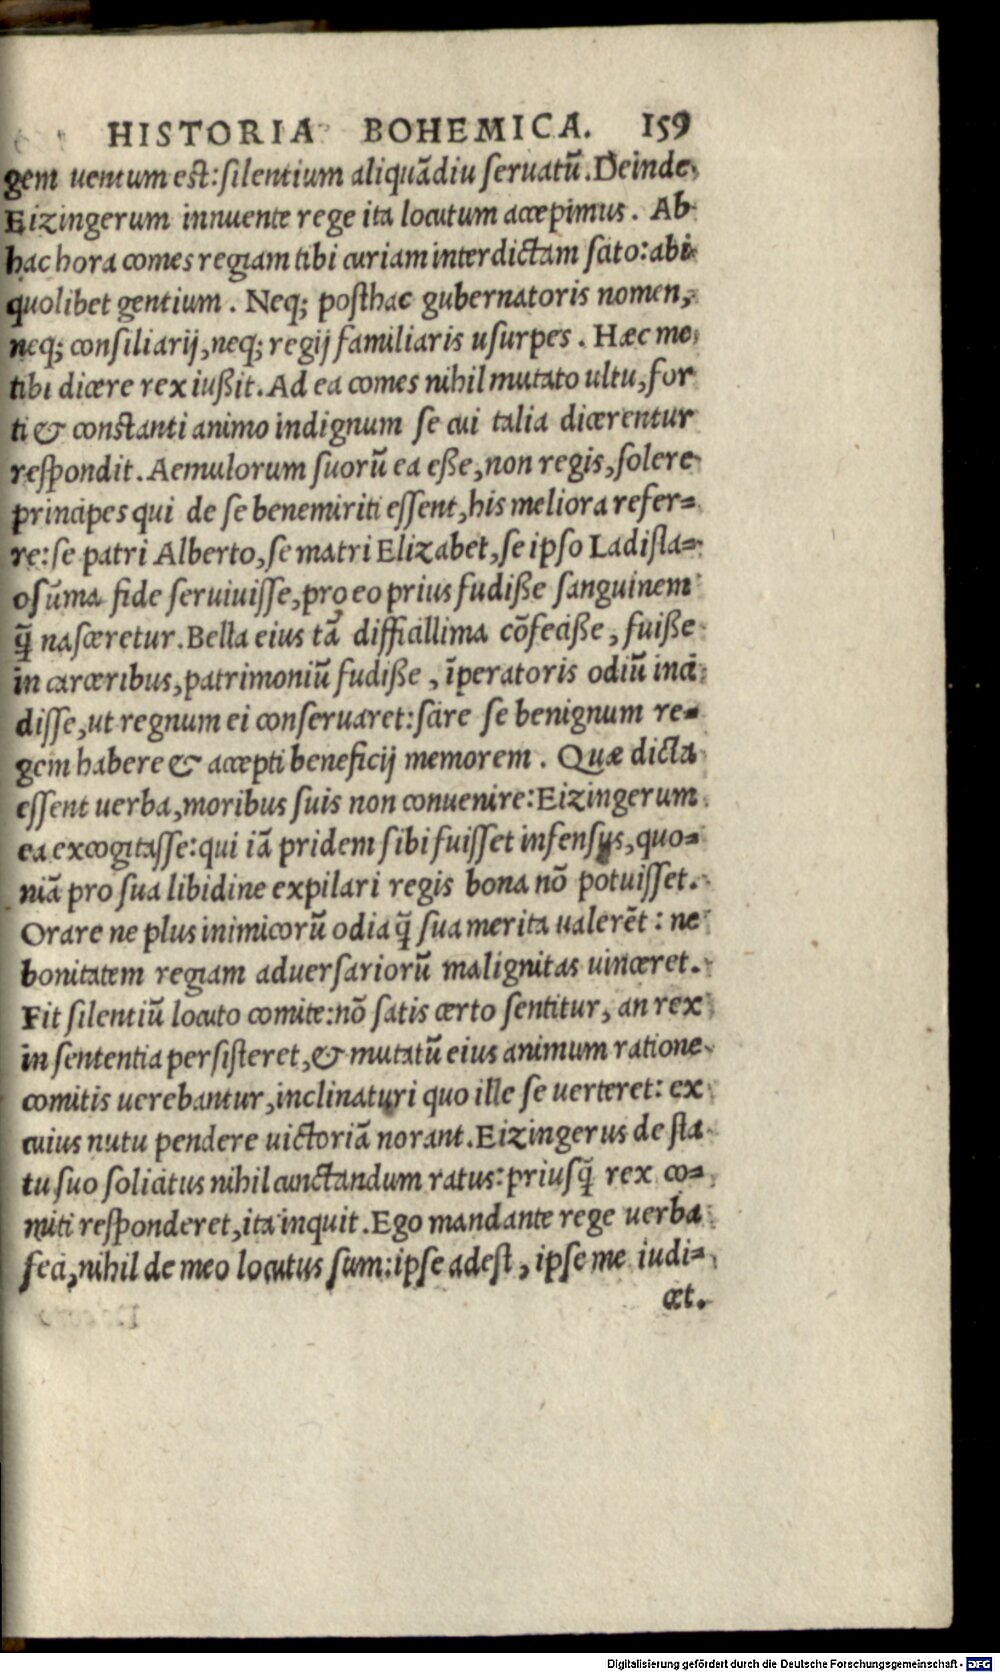 HISTORIA BOHEMICA. 159
gem uentum est: silentium aliquãdiu seruatũ. Deinde
Eizingerum innuente rege ita locutum accepimus. Ab
hac hora comes regiam tibi curiam interdictam scito: abi
quolibet gentium. Neq; posthac gubernatoris nomen,
neq; consiliarij, neq; regij familiaris usurpes. Hæc me
tibi dicere rex iußit. Ad ea comes nihil mutato ultu, for
ti & constanti animo indignum se cui talia dicerentur
respondit. Aemulorum suorũ ea eße, non regis, solere
principes qui de se benemiriti essent, his meliora refer=
re: se patri Alberto, se matri Elizabet, se ipso Ladisla=
o sũma fide seruiuisse, pro eo prius fudiße sanguinem
q̃ nasceretur. Bella eius tã difficillima cõfeciße, fuiße
in carceribus, patrimoniũ fudiße, ĩperatoris odiũ inci
disse, ut regnum ei conseruaret: scire se benignum re=
gem habere & accepti beneficij memorem. Quæ dicta
essent uerba, moribus suis non conuenire: Eizingerum
ea excogitasse: qui iã pridem sibi fuisset infensus, quo=
niã pro sua libidine expilari regis bona nõ potuisset.
Orare ne plus inimicorũ odia q̃ sua merita ualerẽt: ne
bonitatem regiam aduersariorũ malignitas uinceret.
Fit silentiũ locuto comite: nõ satis certo sentitur, an rex
in sententia persisteret, & mutatũ eius animum ratione
comitis uerebantur, inclinaturi quo ille se uerteret: ex
cuius nutu pendere uictoriã norant. Eizingerus de sta
tu suo solicitus nihil cunctandum ratus: priusq̃ rex co=
miti responderet, ita inquit. Ego mandante rege uerba
feci, nihil de meo locutus sum: ipse adest, ipse me iudi=
cet.
Digitalisierung gefördert durch die Deutsche Forschungsgemeinschaft - DFG